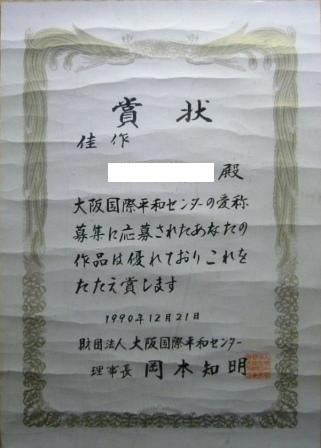 賞状
佳作
殿
大阪国際平和センターの愛称
募集に応募されたあなたの
作品は優れておりこれを
たたえ賞します
1990年12月21日
財団法人 大阪国際平和センター
理事長 岡本知明